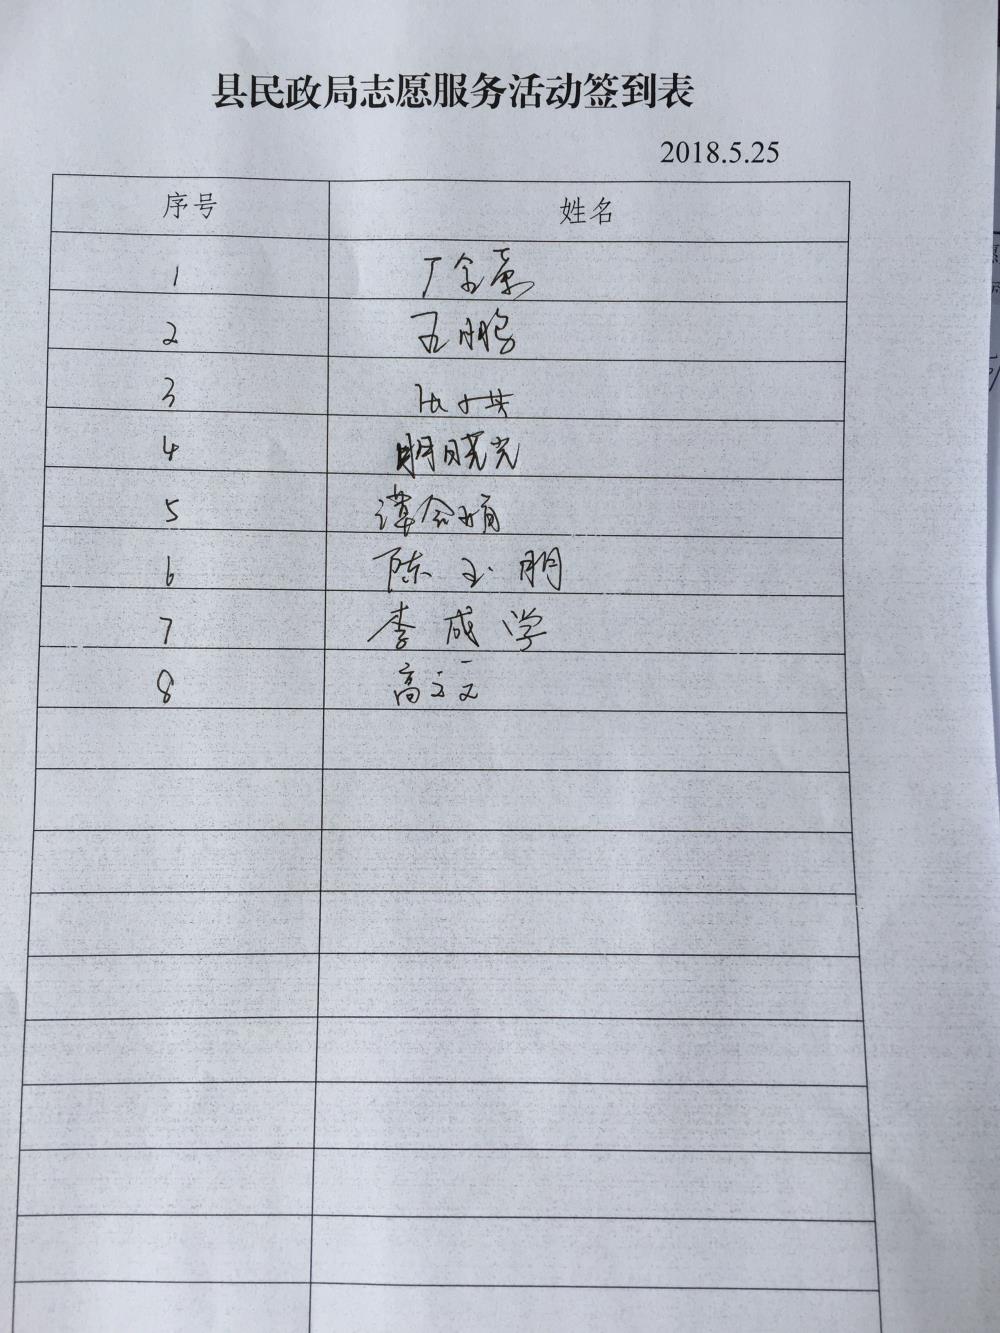 县民政局志愿服务活动签到表
2018.5.25
序号 姓名
1
2 鹏
3
4 明晓光
5 谭念娟
6 陈玉明
7 李成学
8 高文文